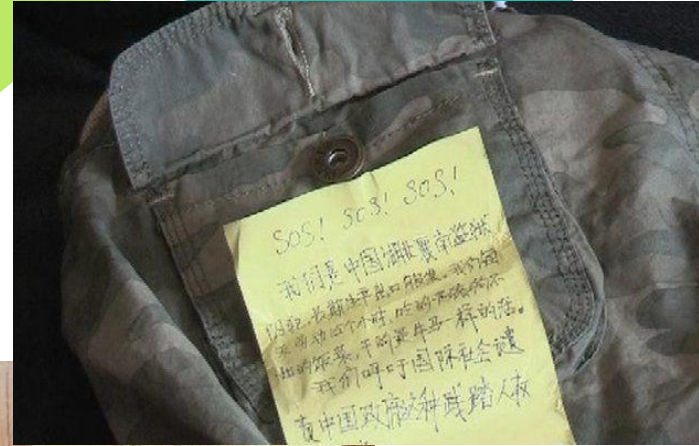 SOS! SOS! SOS!
我们是中国湖北襄南监狱
囚犯，长期生产出口服装，我们每
天劳动15个小时，吃的是猪狗不
如的饭菜，干的是牛马一样的活。
我们呼吁国际社会谴
责中国政府这种践踏人权